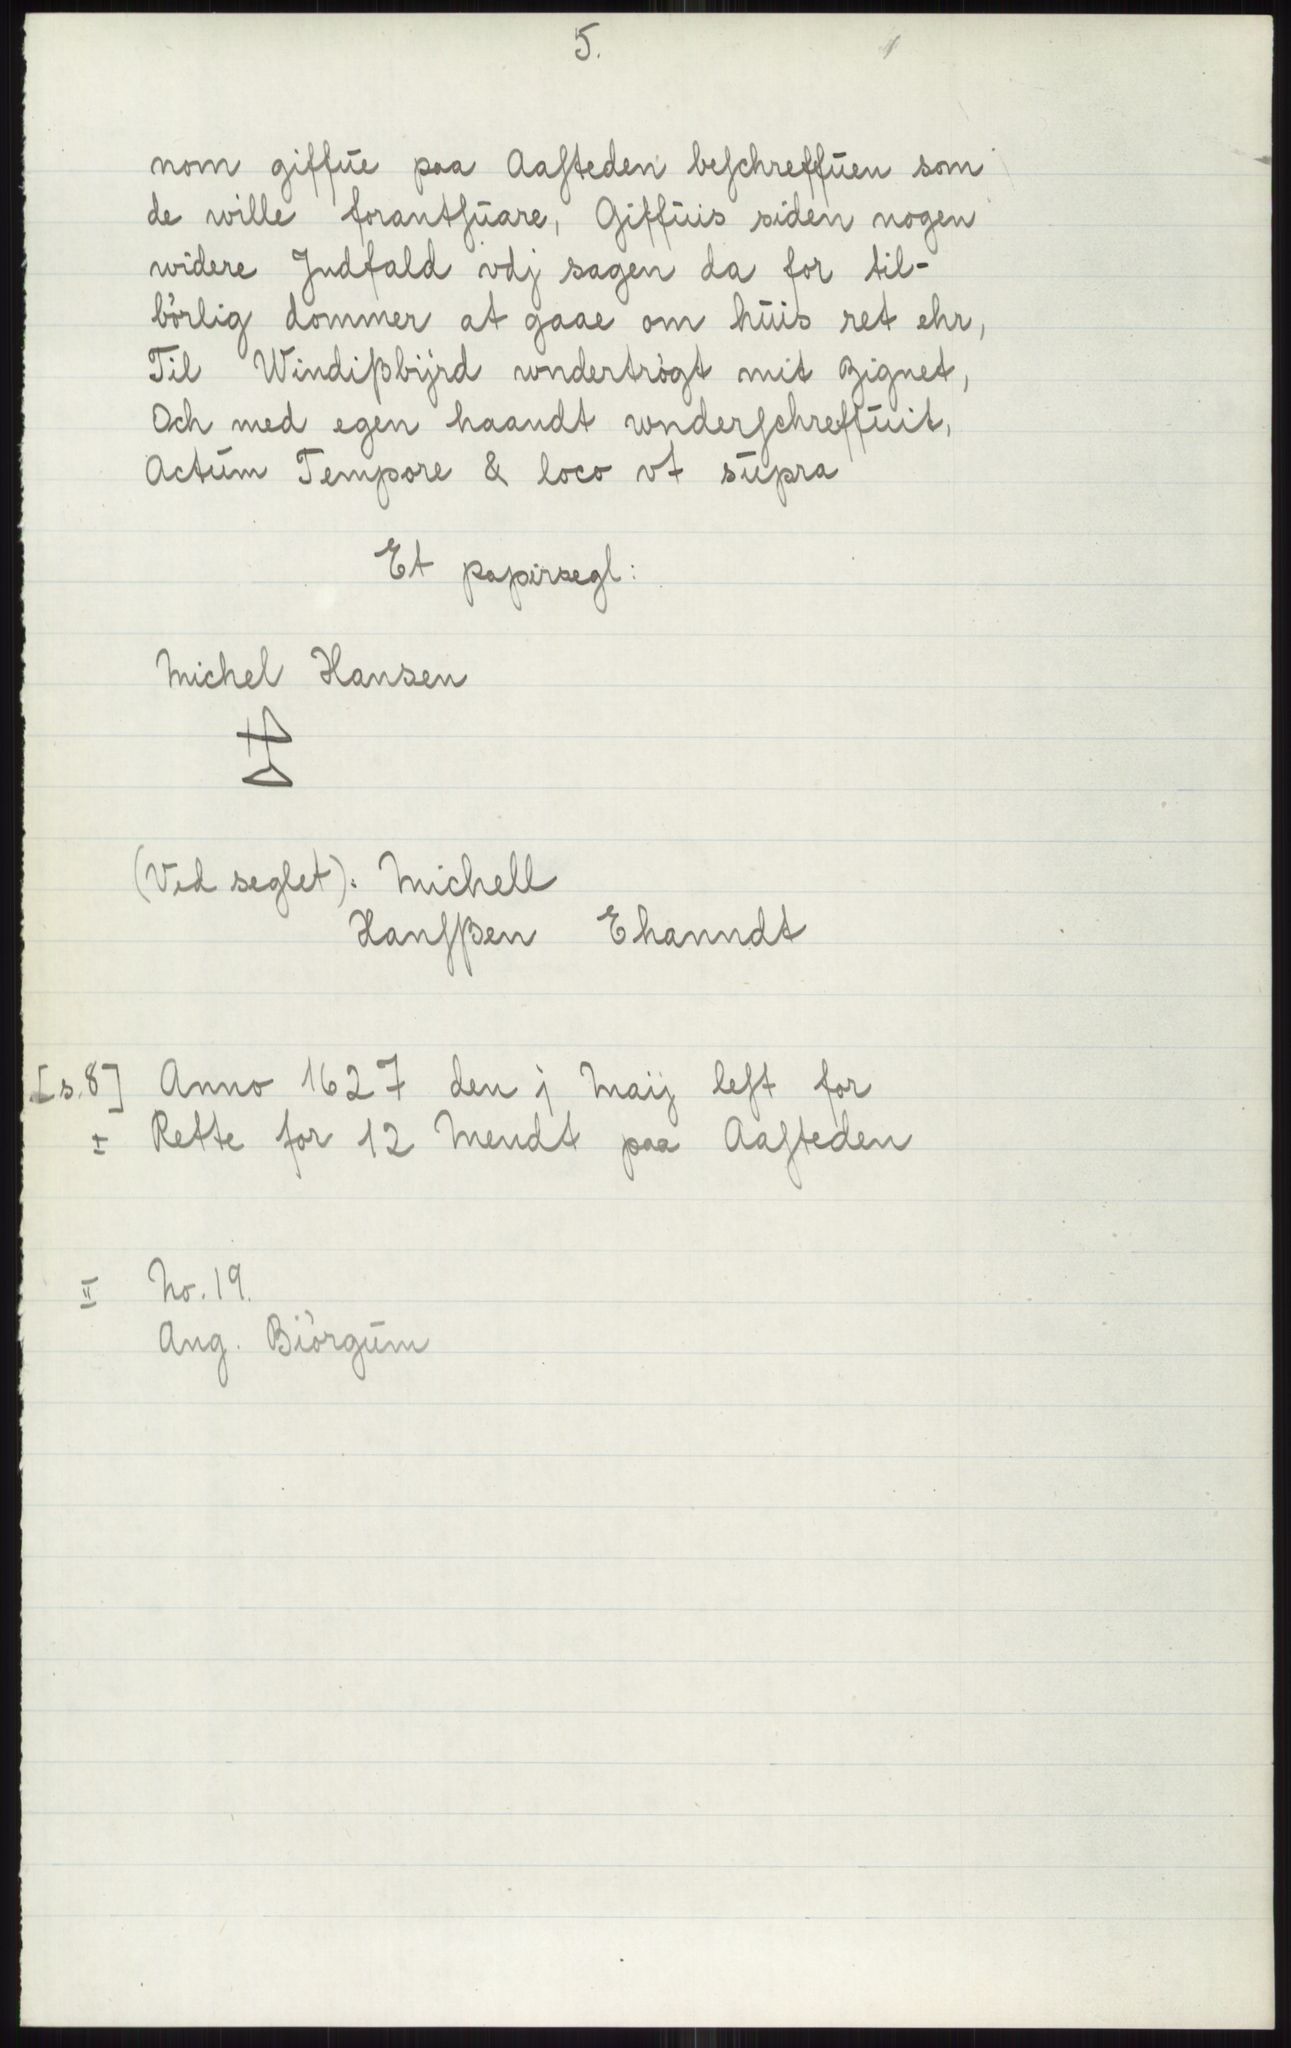 5.
nom giffūe paa Aaſteden beſchreffūen som
de wille forantſūare, Giffūis siden nogen
widere Jndfald vdj sagen da for til-
börlig dommer at gaae om hūis ret ehr,
Til Windißbijrd wndertrögt mit Zignet,
Och med egen haandt wnderſchreffūit,
Actūm Tempore & loco vt sūpra
Et papirsegl:
Michel Hansen
(Ved seglet): Michell
Hanſßen Ehanndt
[s. 8] Anno 1627 den j Maij leſt for
I Rette for 12 Mendt paa Aaſteden
II No. 19.
Ang. Biörgūm